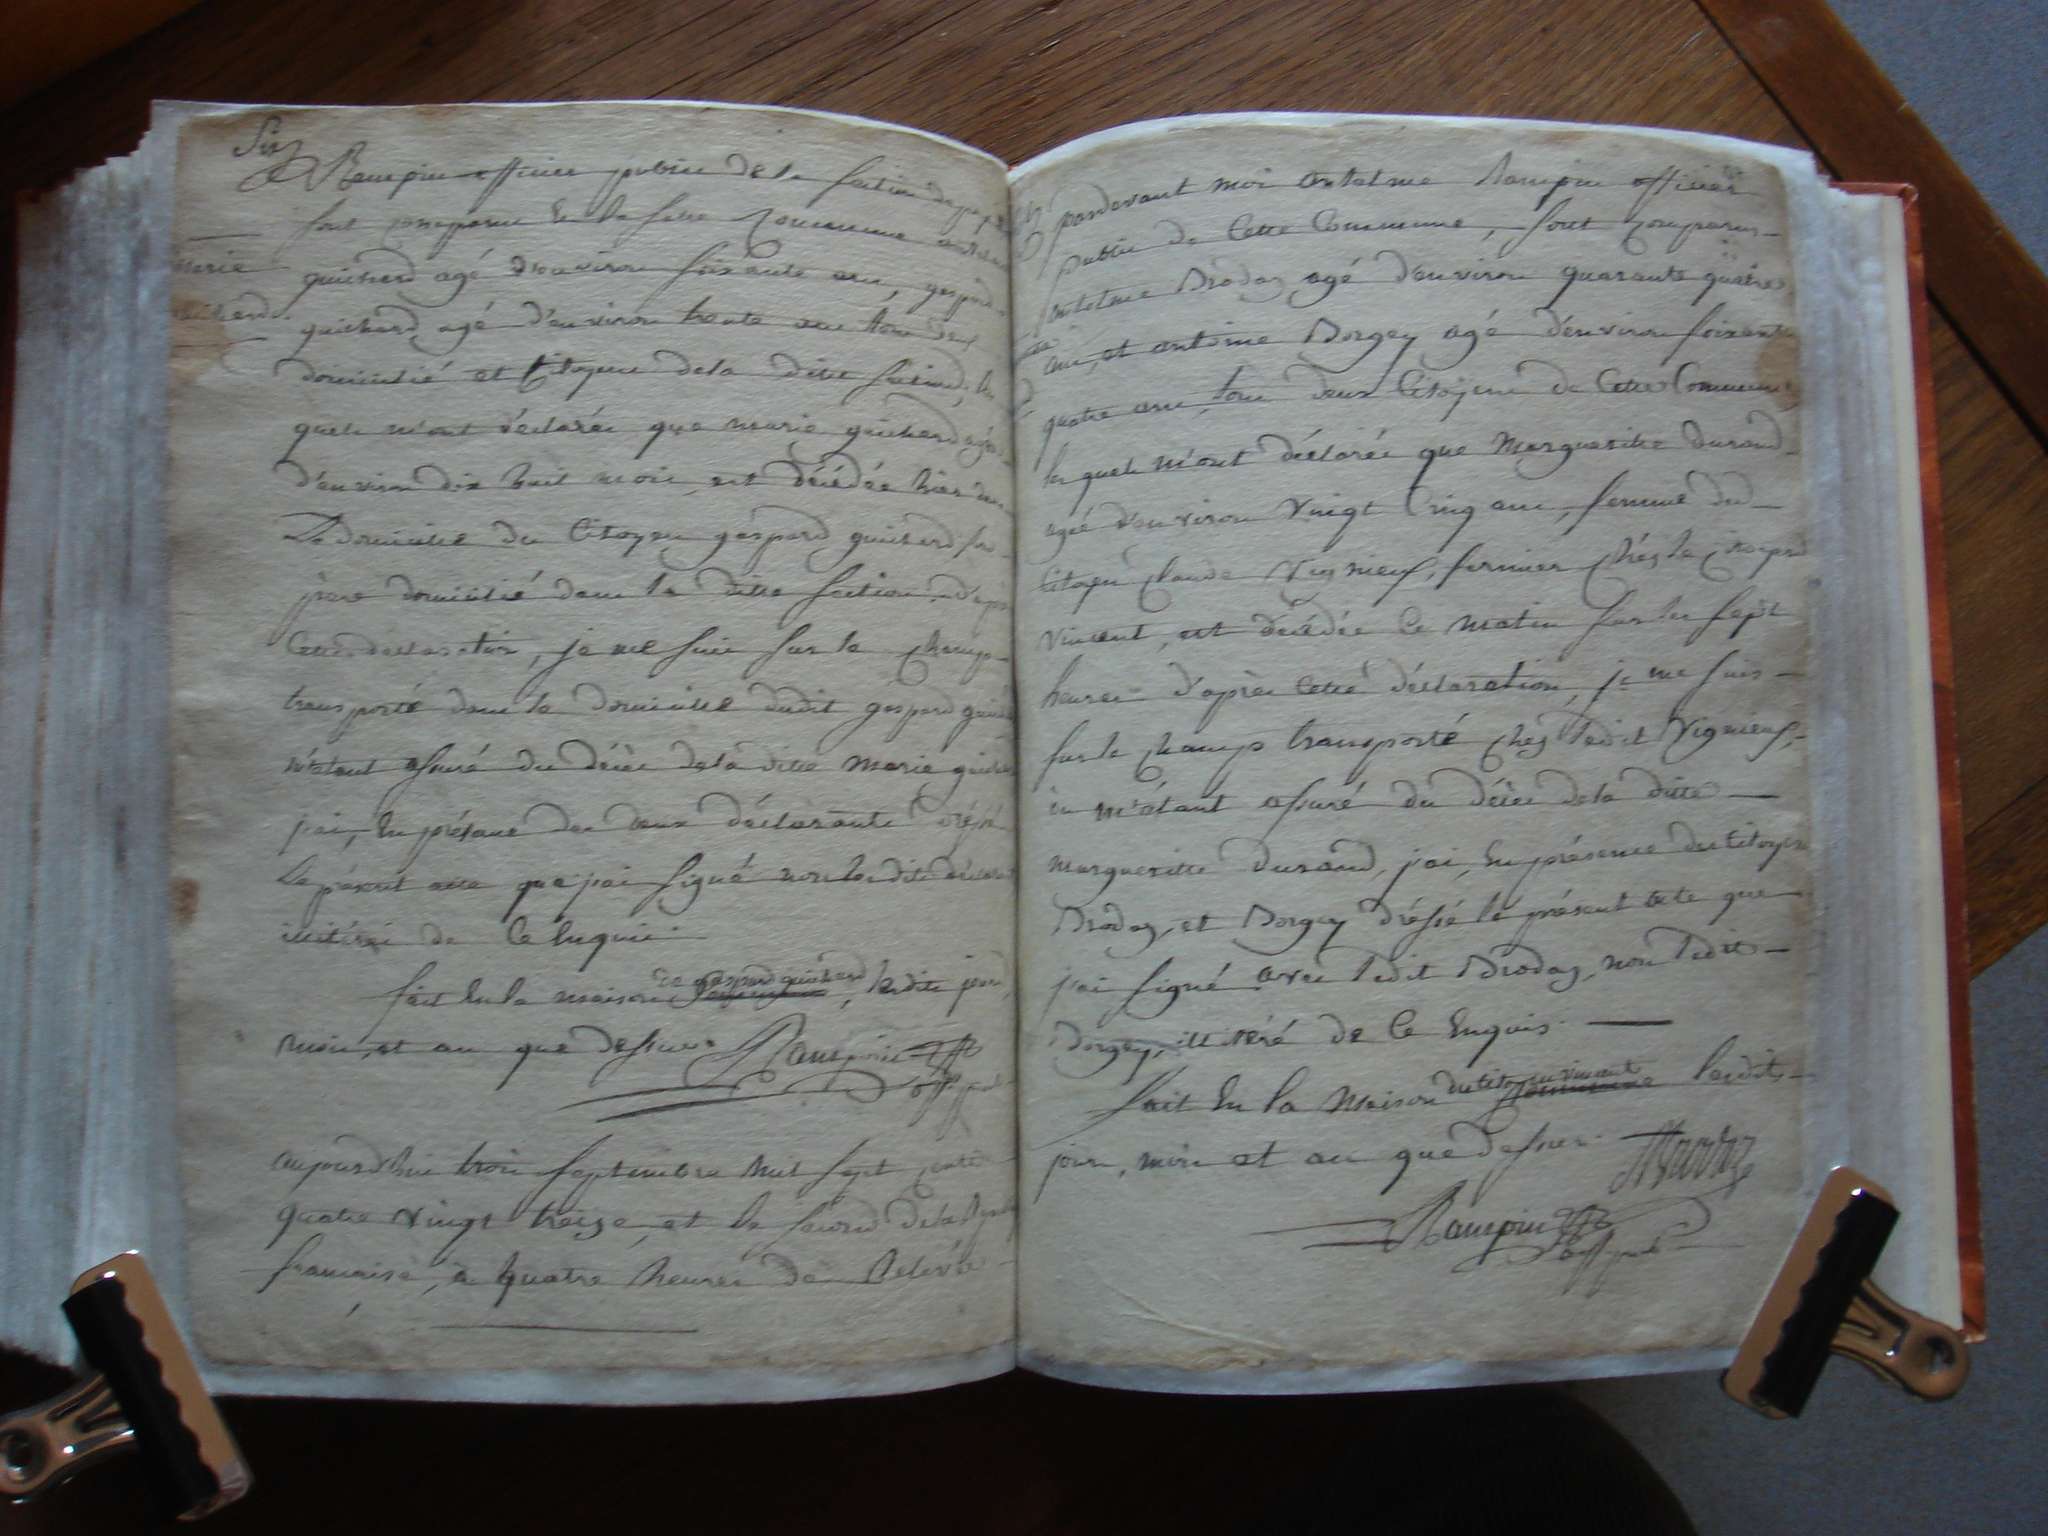 Six
Rampin officier public de la section
sont comparu en la salle commune
Marie
guichard agé d'environ soixante ans, gaspard
guichard
guichard, agé d'environ trente ans tous deux
domicilié et Citoyens dela ditte section, les
quels m'ont déclarés que marie guichard agée
d'environ dix huit mois, est décédée hier dans
Le domicilie du Citoyen gaspard guichard son
pere domicilié dans la ditte section. d'après
Cette declaration, je me suis sur le champ
transporté dans le domicilie dudit gaspard guichard
m'etant assuré du décès dela ditte Marie guichard
j'ai, En présence des deux déclarants dréssé
Le présent acte que j'ai signé non lesdits déclarants
illitérés de Ce Enquis.
fait En la maison de gaspard guichard, lesdits jour,
mois, et an que dessus. Rampin off
off publ
aujourd'hui trois septembre mil sept cents
quatre vingt treize, et le second dela Republ
francaise, à quatre heures de Relevée
pardevant moi Antelme Rampin officier
public de Cette Commune, sont comparus
antelme Brodaz agé d'environ quarante quatre
ans, et antoine Dorgey agé d'environ soixante
quatre ans, tous deux Citoyens de Cette Commune
les quels m'ont déclarés que Margueritte Durand
agée d'environ Vingt Cinq ans, femme du
Citoyen Claude Vignieuf, fermier chés le Citoyen
Vincent, est décédée Ce matin sur les sept
heures. d'après Cette déclaration, je me suis
sur le champ transporté chés ledit Vignieuf,
m'étant assuré du décès dela ditte
margueritte Durand, j'ai, En présence du Citoyen
Brodaz, et Dorgey dréssé le présent acte que
j'ai signé avec ledit Brodaz, non ledit
Dorgey, illitéré de Ce Enquis.
fait En la Maison du Citoyen vincent lesdits
jour, mois et an que dessus. Brodaz
Rampin off
off publ